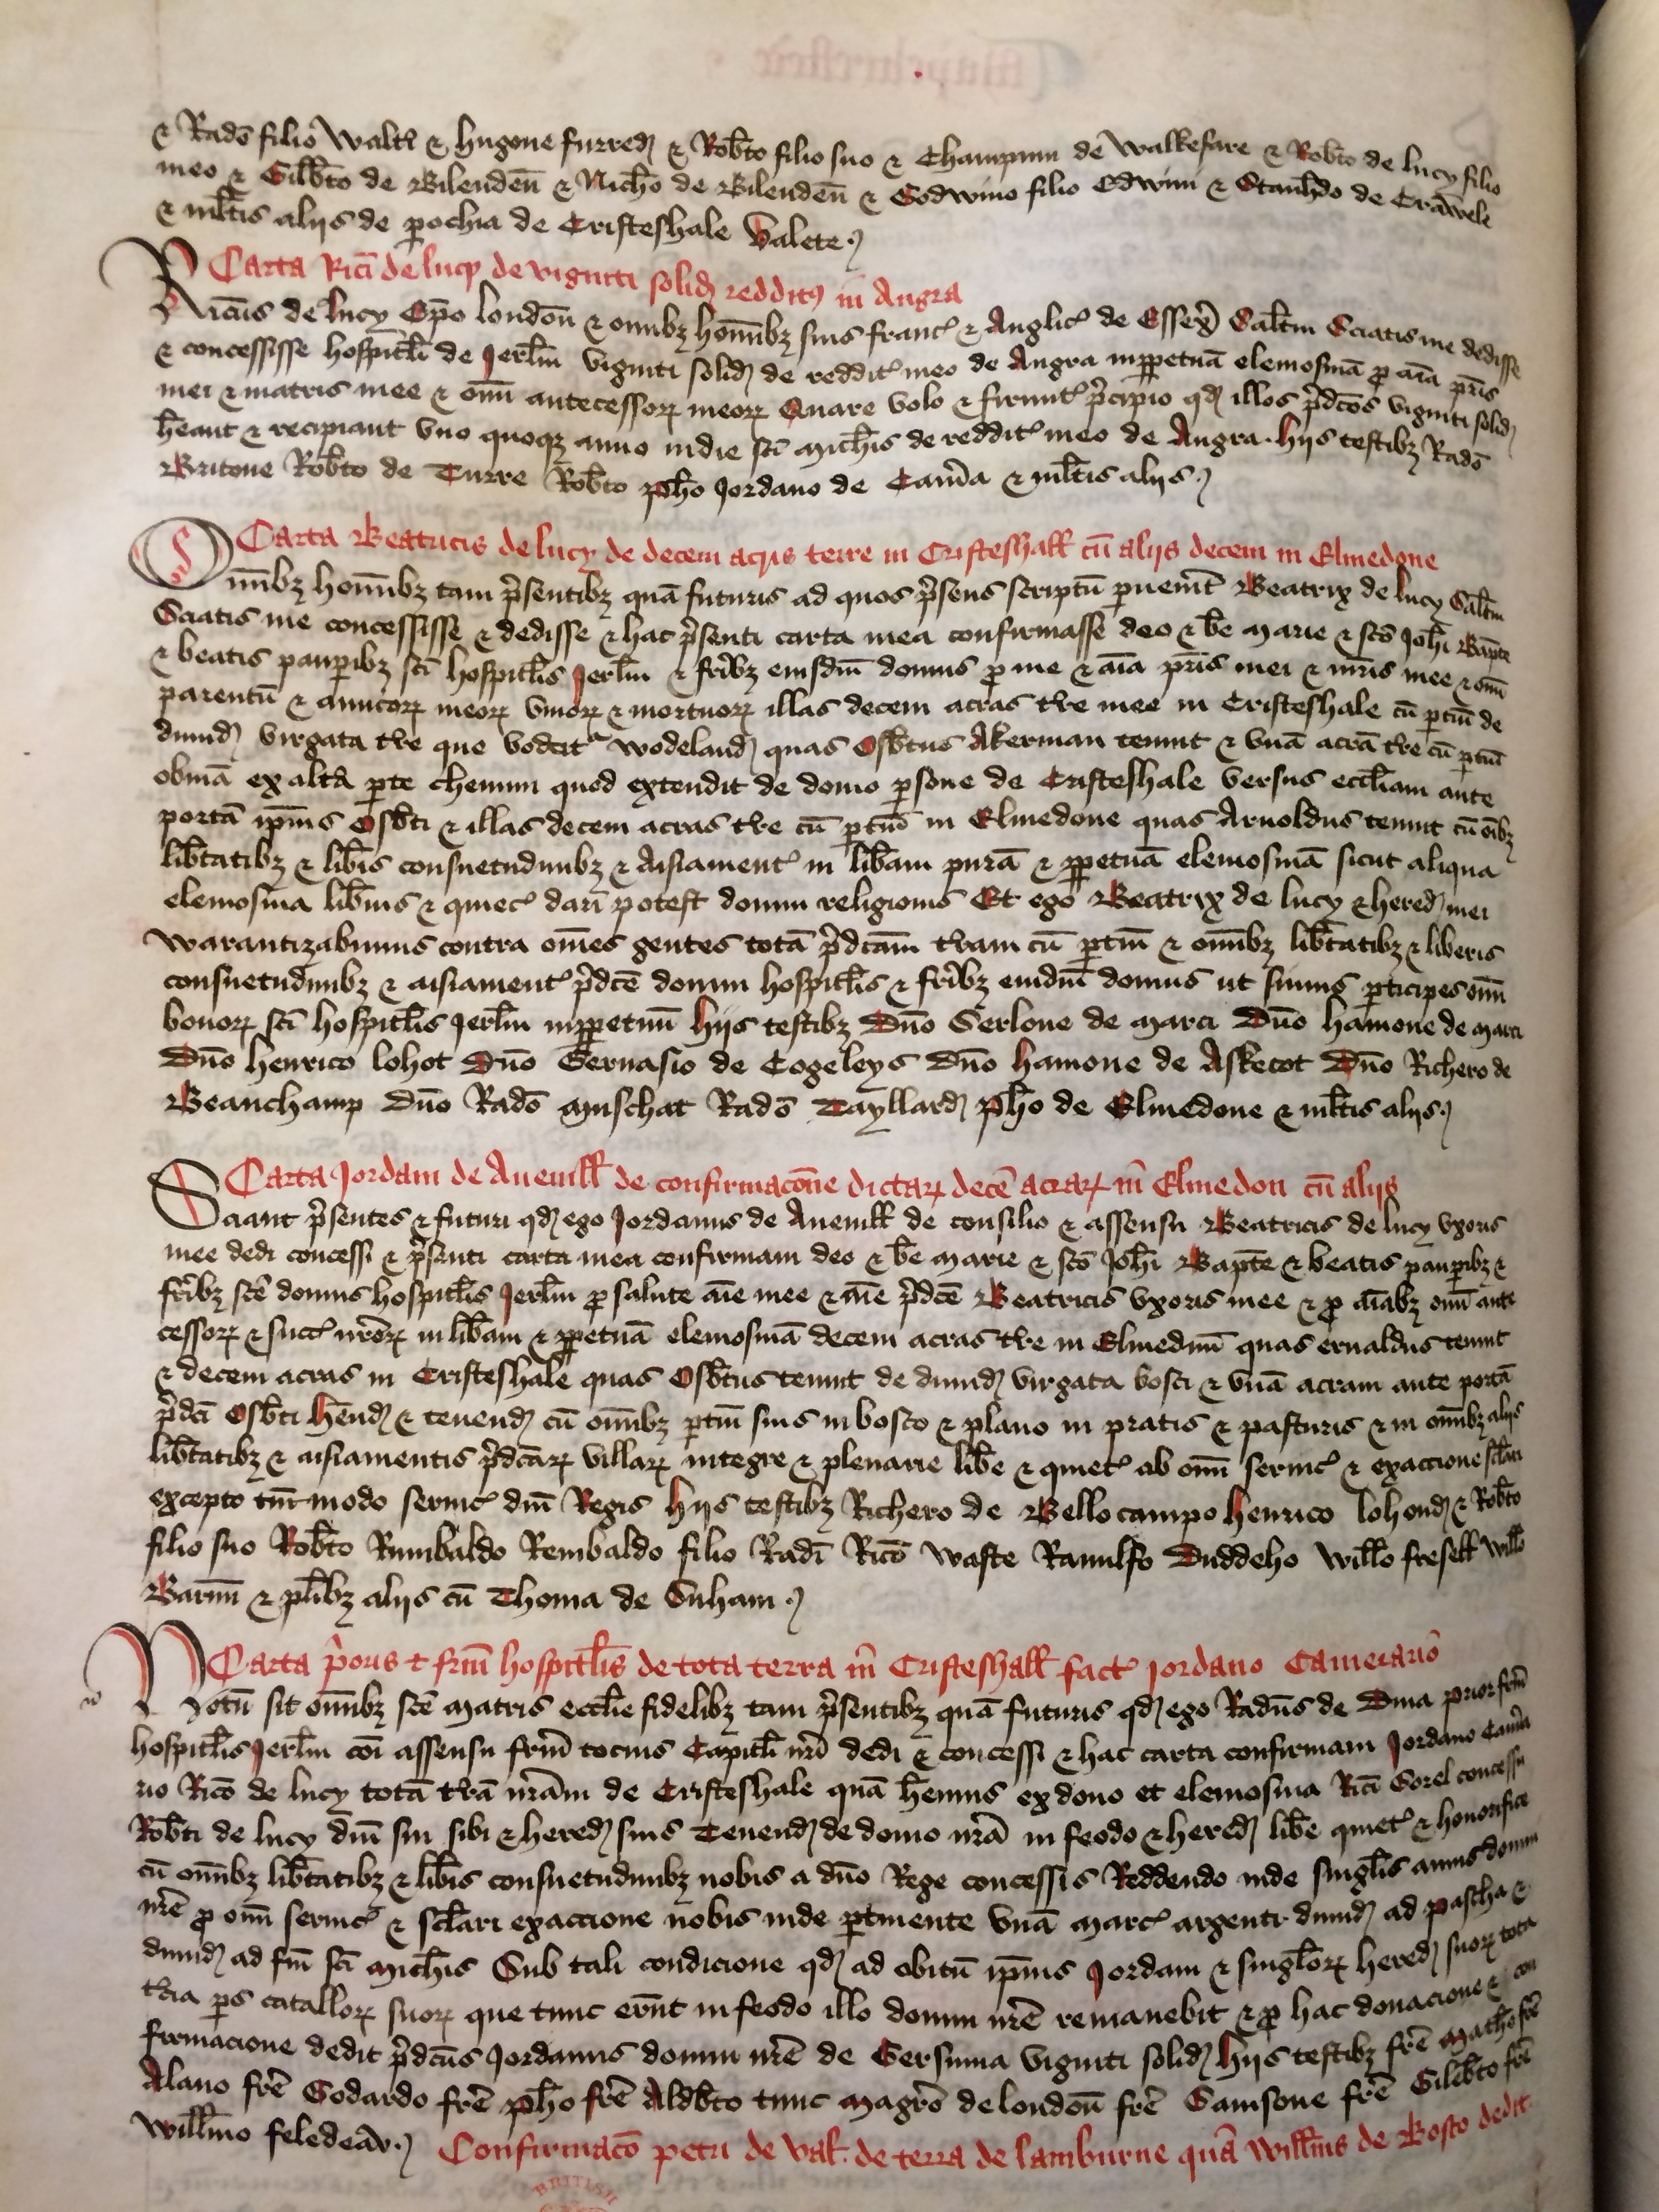 & Rado filio Walti & hugone furred & Robto filio suo & Champinn de Walkefare & Robto de lucy filio
meo & Gilbto de Bilenden & Nicho de Bilenden & Godwino filio Edwini & Stanhdo de Crawele
& mltis aliis de pochia de Cristeshale Valete
Carta Rici de lucy de viginti solid redditus in Angra
Ricus de lucy Epo london & omnibz hominibz suis franc & Anglic de Essex Saltm Sciatis me dedisse
& concessisse hospitli de Jerlm viginti solid de reddit meo de Angra inppetua elemosina p aia pris
mei & matris mee & omi antecessor meor Quare volo & firmit pcipio qd illos pdcos viginti solid
heant & recipiant vno quoqz anno indie sci michis de reddit meo de Angra. hiis testibz Rado
Britone Robto de Turre Robto pho Jordano de Cama & mltis aliis
Carta Beatricis de lucy de decem acris terre in Cristeshall cu aliis decem in Elmedone
Omibz hominibz tam psentibz qua futuris ad quos psens scriptu puenit Beatrix de lucy Saltm
Sciatis me concessisse & dedisse & hac psenti carta mea confirmasse deo & be marie & sco Johi Bapte
& beatis paupibz sci hospitlis Jerlm & fribz eiusdm domus p me & aia pris mei & mris mee & omi
parentu & amicor meor vivor & mortuor illas decem acras tre mee in Cristeshale cu ptin de
dimid virgata tre que vocat Wodeland quas Osbtus Akerman tenuit & vna acra tre cu ptin
obuia ex alta pte chemini quod extendit de domo psone de Cristeshale versus eccliam ante
porta ipius Osbti & illas decem acras tre cu ptin in Elmedone quas Arnoldus tenuit cu oibz
libtatibz & libis consuetudinibz & Aisiament in libam pura & ppetua elemosina sicut aliqua
elemosina libius & quiec dari potest domui religionis Et ego Beatrix de lucy & hered mei
warantizabimus contra omes gentes tota pdcam tram cu ptin & omibz libtatibz & liberis
consuetudinibz & aisiament pdce domui hospitlis & fribz eiudm domus ut simus pticipes omi
bonor sci hospitlis Jerlm inppetuu hiis testibz Dno Serlone de marci Dno hamone de marci
Dno henrico lohot Dno Gernasio de Cogeleys Dno hamone de Askecot Dno Richero de
Beauchamp Dno Rado muschat Rado Tayllard pho de Elmedone & mltis aliis
Carta Jordani de Aueuill de confirmacone dictar dece acrar in Elmedon cu aliis
Sciant psentes & futuri qd ego Jordanus de Aueuill de consilio & assensu Beatricis de lucy vxoris
mee dedi concessi & psenti carta mea confirmaui deo & be marie & sco Johi Bapte & beatis paupibz &
fribz sce domus hospitlis Jerlm p salute aie mee & aie pdce Beatricis vxoris mee & p aiabz omi ante
cessor & succ nror in libam & ppetua elemosina decem acras tre in Elmedun quas ernaldus tenuit
& decem acras in Cristeshale quas Osbtus tenuit de dimid virgata bosci & vna acram ante porta
pdci Osbti hend & tenend cu omibz ptin suis in bosco & plano in pratis & pasturis & in omibz aliis
libtatibz & aisiamentis pdcar villar integre & plenarie libe & quiet ab omi seruic & exaccione sclari
excepto tmmodo seruic dni Regis hiis testibz Richero de Bellocampo henrico lohond & Robto
filio suo Robto Rumbaldo Rembaldo filio Radi Rico waste Ranulfo Duddeho Willo fresell Willo
Barun & plibz aliis cu Thoma de Suham
Carta prioris & frm hospitlis de tota terra in Cristeshall fact Jordano Camerario
Notu sit omibz sce matris ecclie fidelibz tam psentibz qua futuris qd ego Radus de Diua prior frm
hospitlis Jerlm coi assensu frm tocius Capitli nri dedi & concessi & hac carta confirmaui Jordano Cama
rio Rico de lucy tota tra nram de Cristeshale qua hemus ex dono et elemosina Rici Sorel concessu
Robti de lucy dni sui sibi & hered suis Tenend de domo nra in feodo & hered libe quiet & honorifice
cu omibz libtatibz & libis consuetudinibz nobis a dno Rege concessis Reddendo inde singlis annis domui
nre p omi seruic & sclari exaccione nobis inde ptinente vna marc argenti dimid ad pascha &
dimid ad fm sci michis Sub tali condicione qd ad obitu ipius Jordani & singlor hered suor tota
tcia ps catallor suor que tunc ernt in feodo illo domui nre remanebit & p hac donacione & con
firmacione dedit pdcus Jordanus domui nre de Gersuma viginti solid hiis testibz fre matho fre
Alano fre Godardo fre pho fre Aldbto tunc magro de london fre Samsone fre Gilibto fre
Willmo feledeav Confirmaco petri de val. de terra de lamburne qua Willms de Bosco dedit
BRITISH